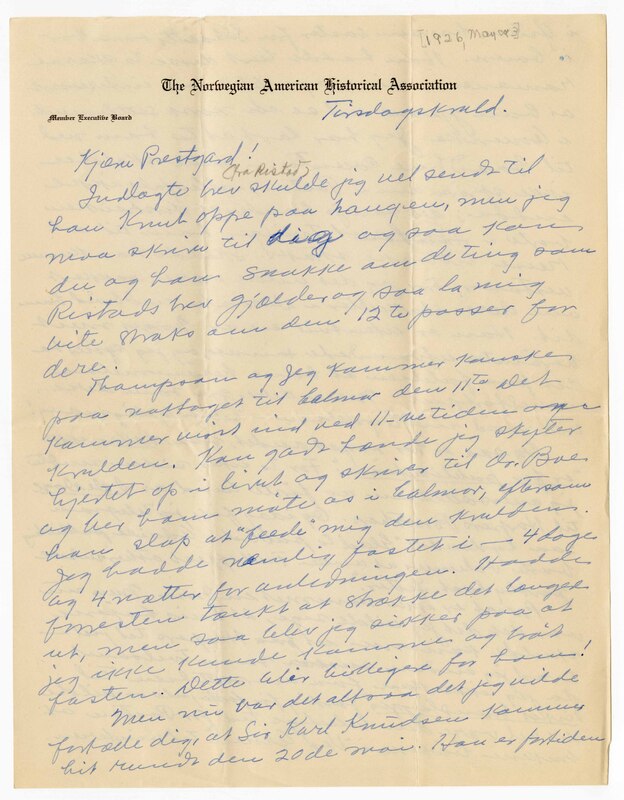 [1926, May or]
The Norwegian American Historical Association
Member Executive Board
Tirsdagskveld.
Kjære Prestgard!
(fra Ristad)
Indlagte brev skulde jeg vel sendt til
han Knut oppe paa haugen, men jeg
maa skrive til dig og saa kan
du og han snakke om de ting som
Ristads brev gjælder og saa la mig
vite straks om den 12te passer for
dere.
Thompson og jeg kommer kanske
paa nattoget til Calmar den 11te. Det
kommer visst ind ved 11-netiden om
kvelden. Kan godt hænde jeg skyter
hjertet op i livet og skriver til Dr. Boe
og ber ham møte os i Calmar, eftersom
han slap at "feede" mig den kvelden.
Jeg hadde nemlig fastet i — 4 dage
og 4 nætter for anledningen. Hadde
forresten tænkt at strække det længer
ut, men saa blev jeg sikker paa at
jeg ikke kunde komme og brøt
fasten. Dette blir billigere for ham!
Men nu var det altsaa det jeg vilde
fortælle dig, at Sir Karl Knudsen kommer
hit rundt den 20de mai. Han er for tiden